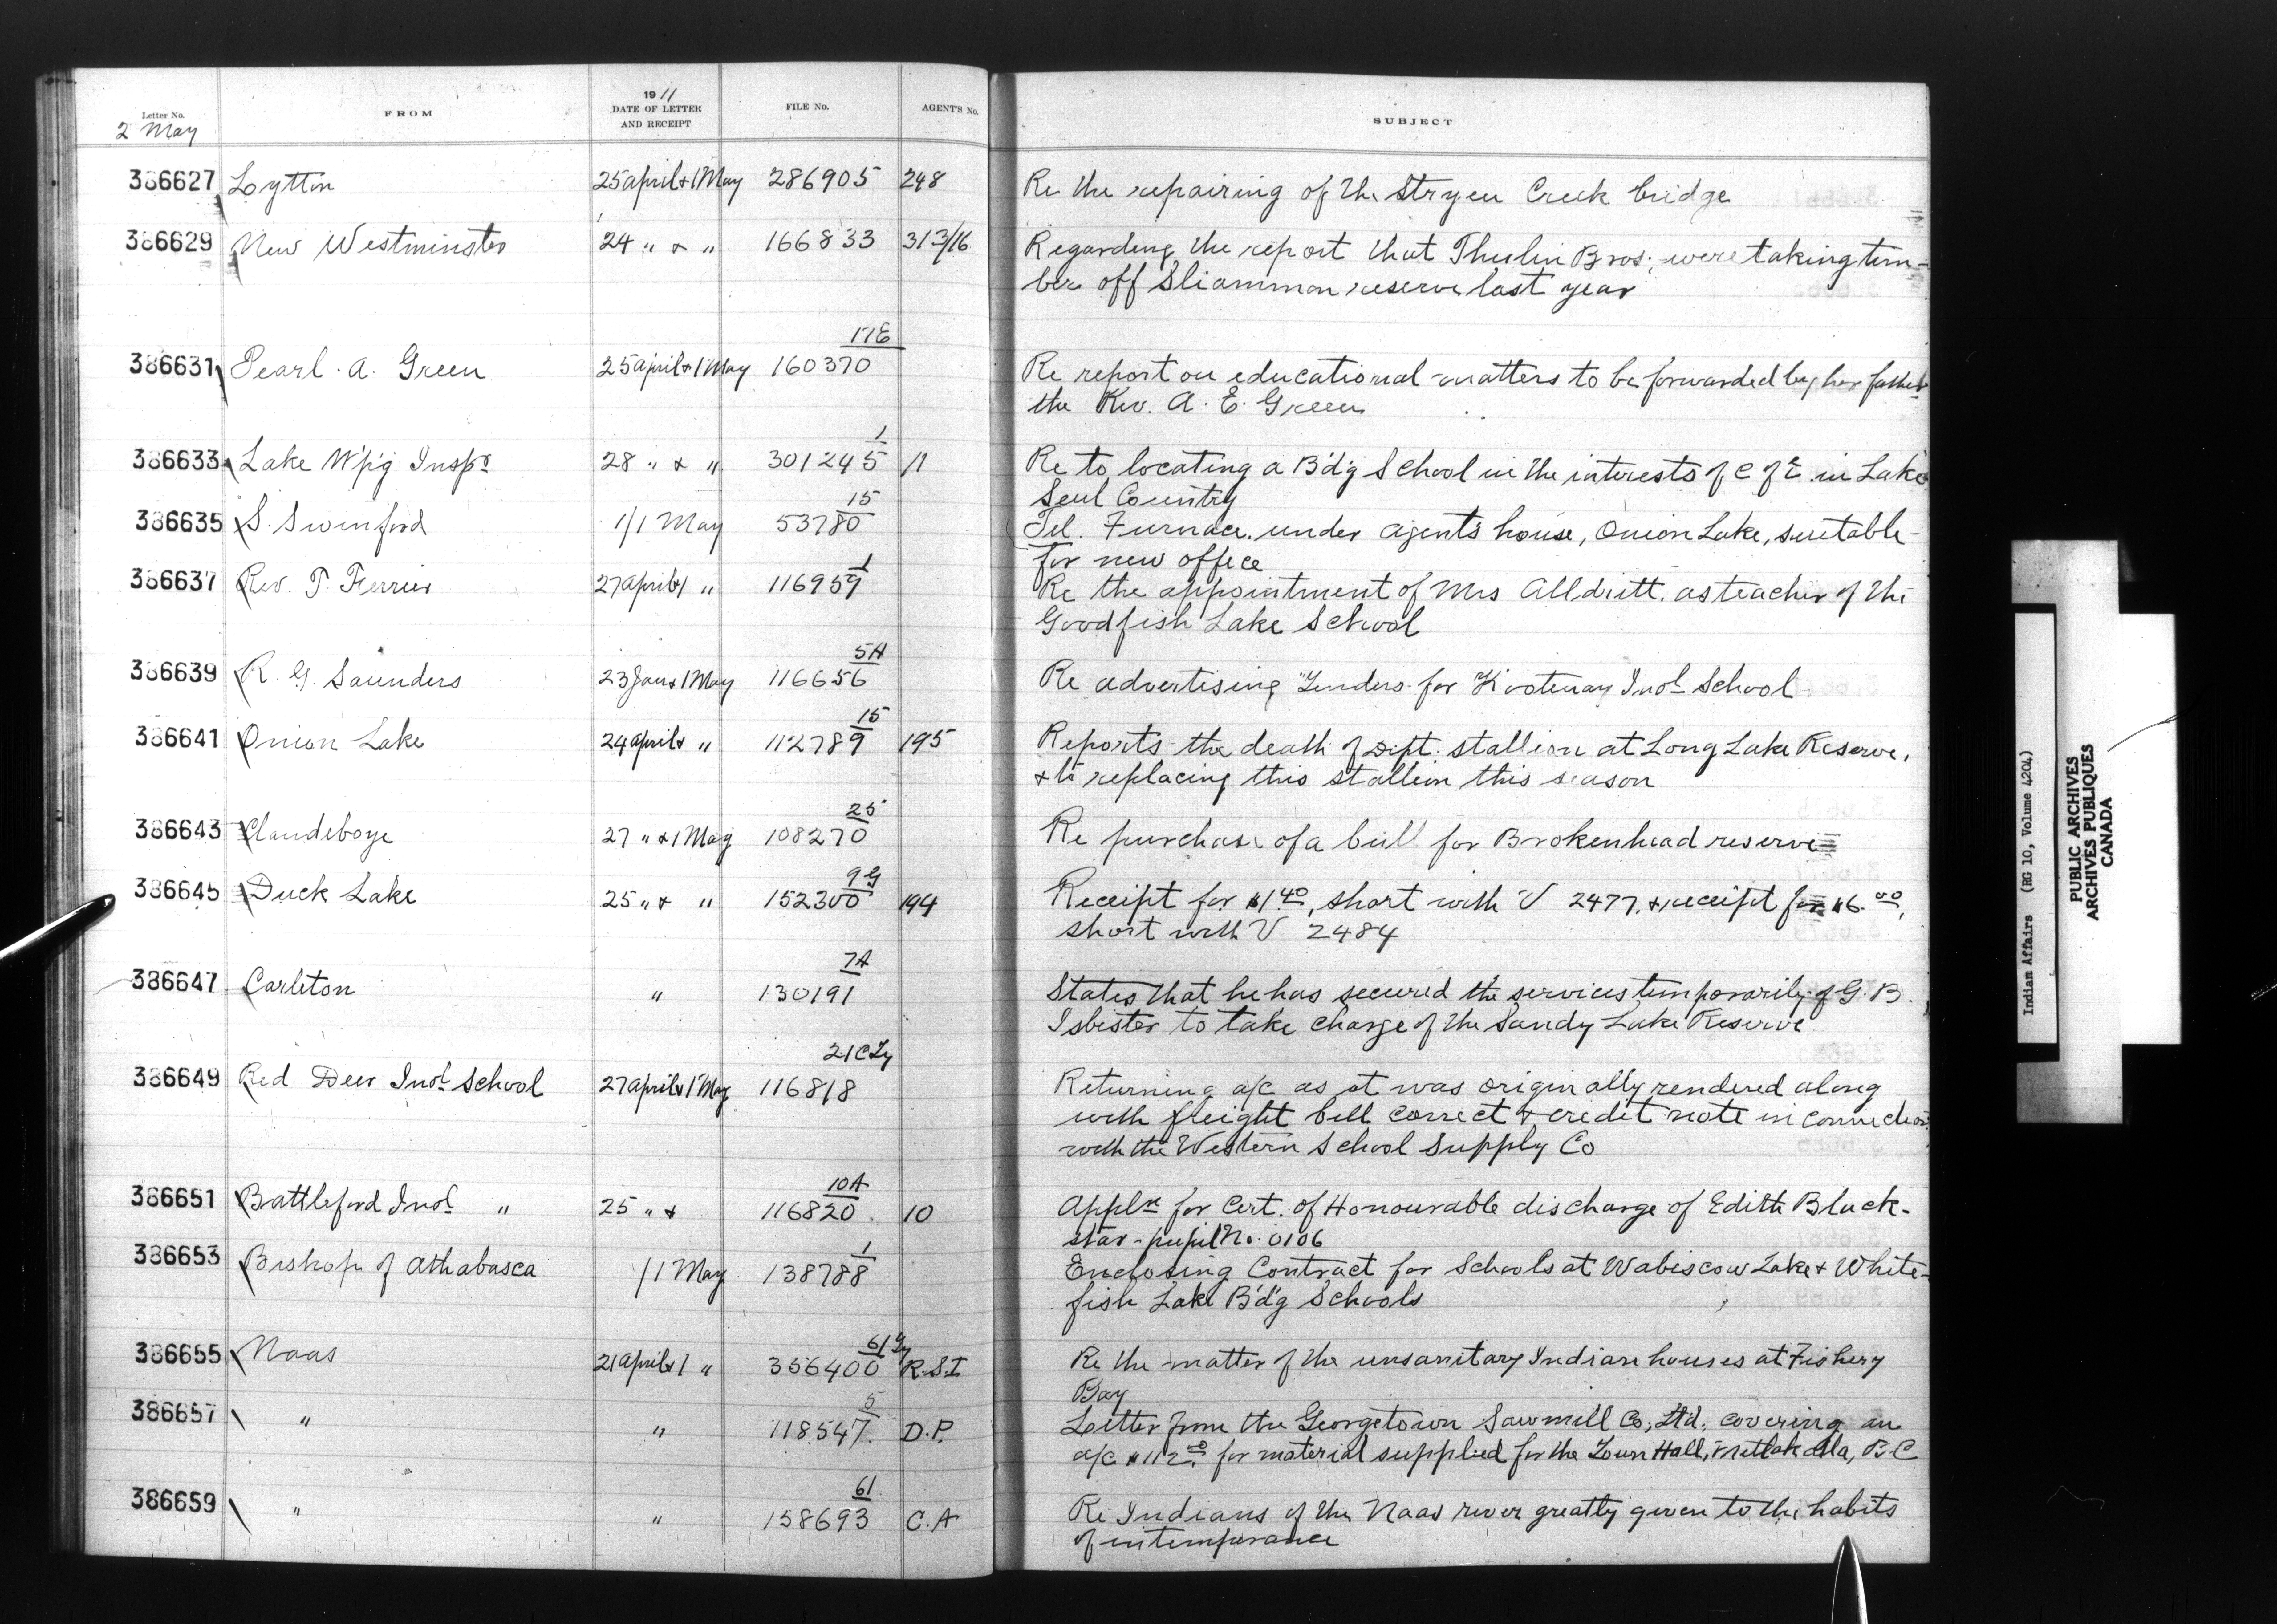 Letter No. FROM 1911 DATE OF LETTER AND RECEIPT FILE No. AGENT'S No. SUBJECT
2 May
386627 Lytton 25 april & 1 May 286905 248 Re the repairing of the Stryen Creek bridge
386629 New Westminster 24 " & " 166833 313/16 Regarding the report that Thulin Bros., were taking tim-
ber off Sliammon reserve last year
17E
386631 Pearl. A. Green 25 april & 1 May 160370 Re report on educational matters to be forwarded by her father
the Rev. A. E. Green
1
386633 Lake W'p'g Inspr 28 " & " 301245 11 Re to locating a B'd'g School in the interests of C of E. in Lake
Seul Country
15
386635 S. Swinford 1/1 May 53780 Tel. Furnace under agent's house, Onion Lake, suitable
for new office
1
386637 Rev. T. Ferrier 27 april & 1 " 116959 Re the appointment of Mrs Alldritt. as teacher of the
Goodfish Lake School
5A
386639 R. G. Saunders 23 Jan & 1 May 116656 Re advertising Tenders for Kootenay Indl School
15
386641 Onion Lake 24 april & " 112789 195 Reports the death of Dept. stallion at Long Lake Reserve,
& to replacing this stallion this season
25
386643 Clandeboye 27 " & 1 May 108270 Re purchase of a bull for Brokenhead reserve
9G
386645 Duck Lake 25 " & " 152300 194 Receipt for $1.40, short with V 2477, & receipt for $6.00,
short with V 2484
7A
386647 Carleton " 130191 States that he has secured the services temporarily of G. B.
Isbister to take charge of the Sandy Lake Reserve
21
386649 Red Deer Indl School 27 april & 1 May 116818 Returning a/c as it was originally rendered along
with freight bill correct & credit note in connection
with the Western School Supply Co
10A
386651 Battleford Indl " 25 " & 116820 10 Appln for Cert. of Honourable discharge of Edith Black-
star - pupil No. 0106
1
386653 Bishop of Athabasca /1 May 138788 Enclosing Contract for Schools at Wabiscow Lake & White-
fish Lake B'd'g Schools
61
386655 Naas 21 april & 1 " 356400 R.S.I Re the matter of the unsanitary Indian houses at Fishery
Bay
5
386657 " " 118547 D.P. Letter from the Georgetown Sawmill Co, Ltd. covering an
a/c $112. for material supplied for the Town Hall, Metlakatla, B.C
61
386659 " " 158693 C.A Re Indians of the Naas river greatly given to the habits
of intemperance
Indian Affairs (RG 10, Volume 4204)
PUBLIC ARCHIVES
ARCHIVES PUBLIQUES
CANADA